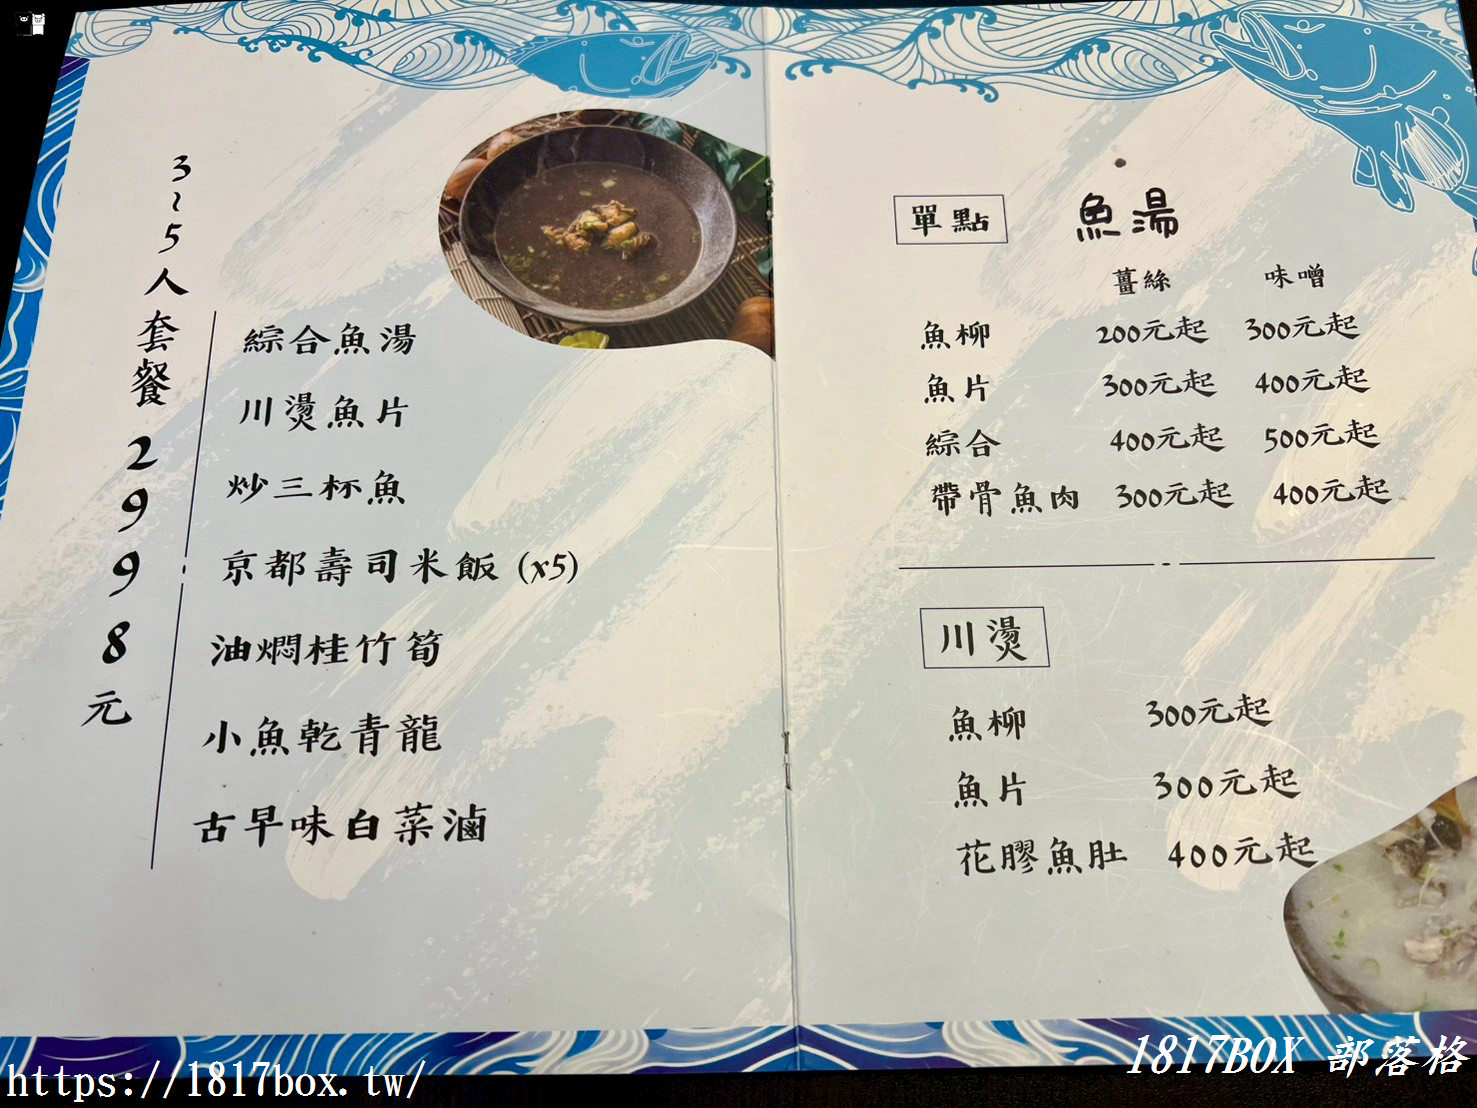 3~5人套餐2998元
綜合魚湯
川燙魚片
炒三杯魚
京都壽司米飯 (x5)
油燜桂竹筍
小魚乾青龍
古早味白菜滷
單點
魚湯
薑絲 味噌
魚柳 200元起 300元起
魚片 300元起 400元起
綜合 400元起 500元起
帶骨魚肉 300元起 400元起
川燙
魚柳 300元起
魚片 300元起
花膠魚肚 400元起
https://1817box.tw/
1817BOX 部落格